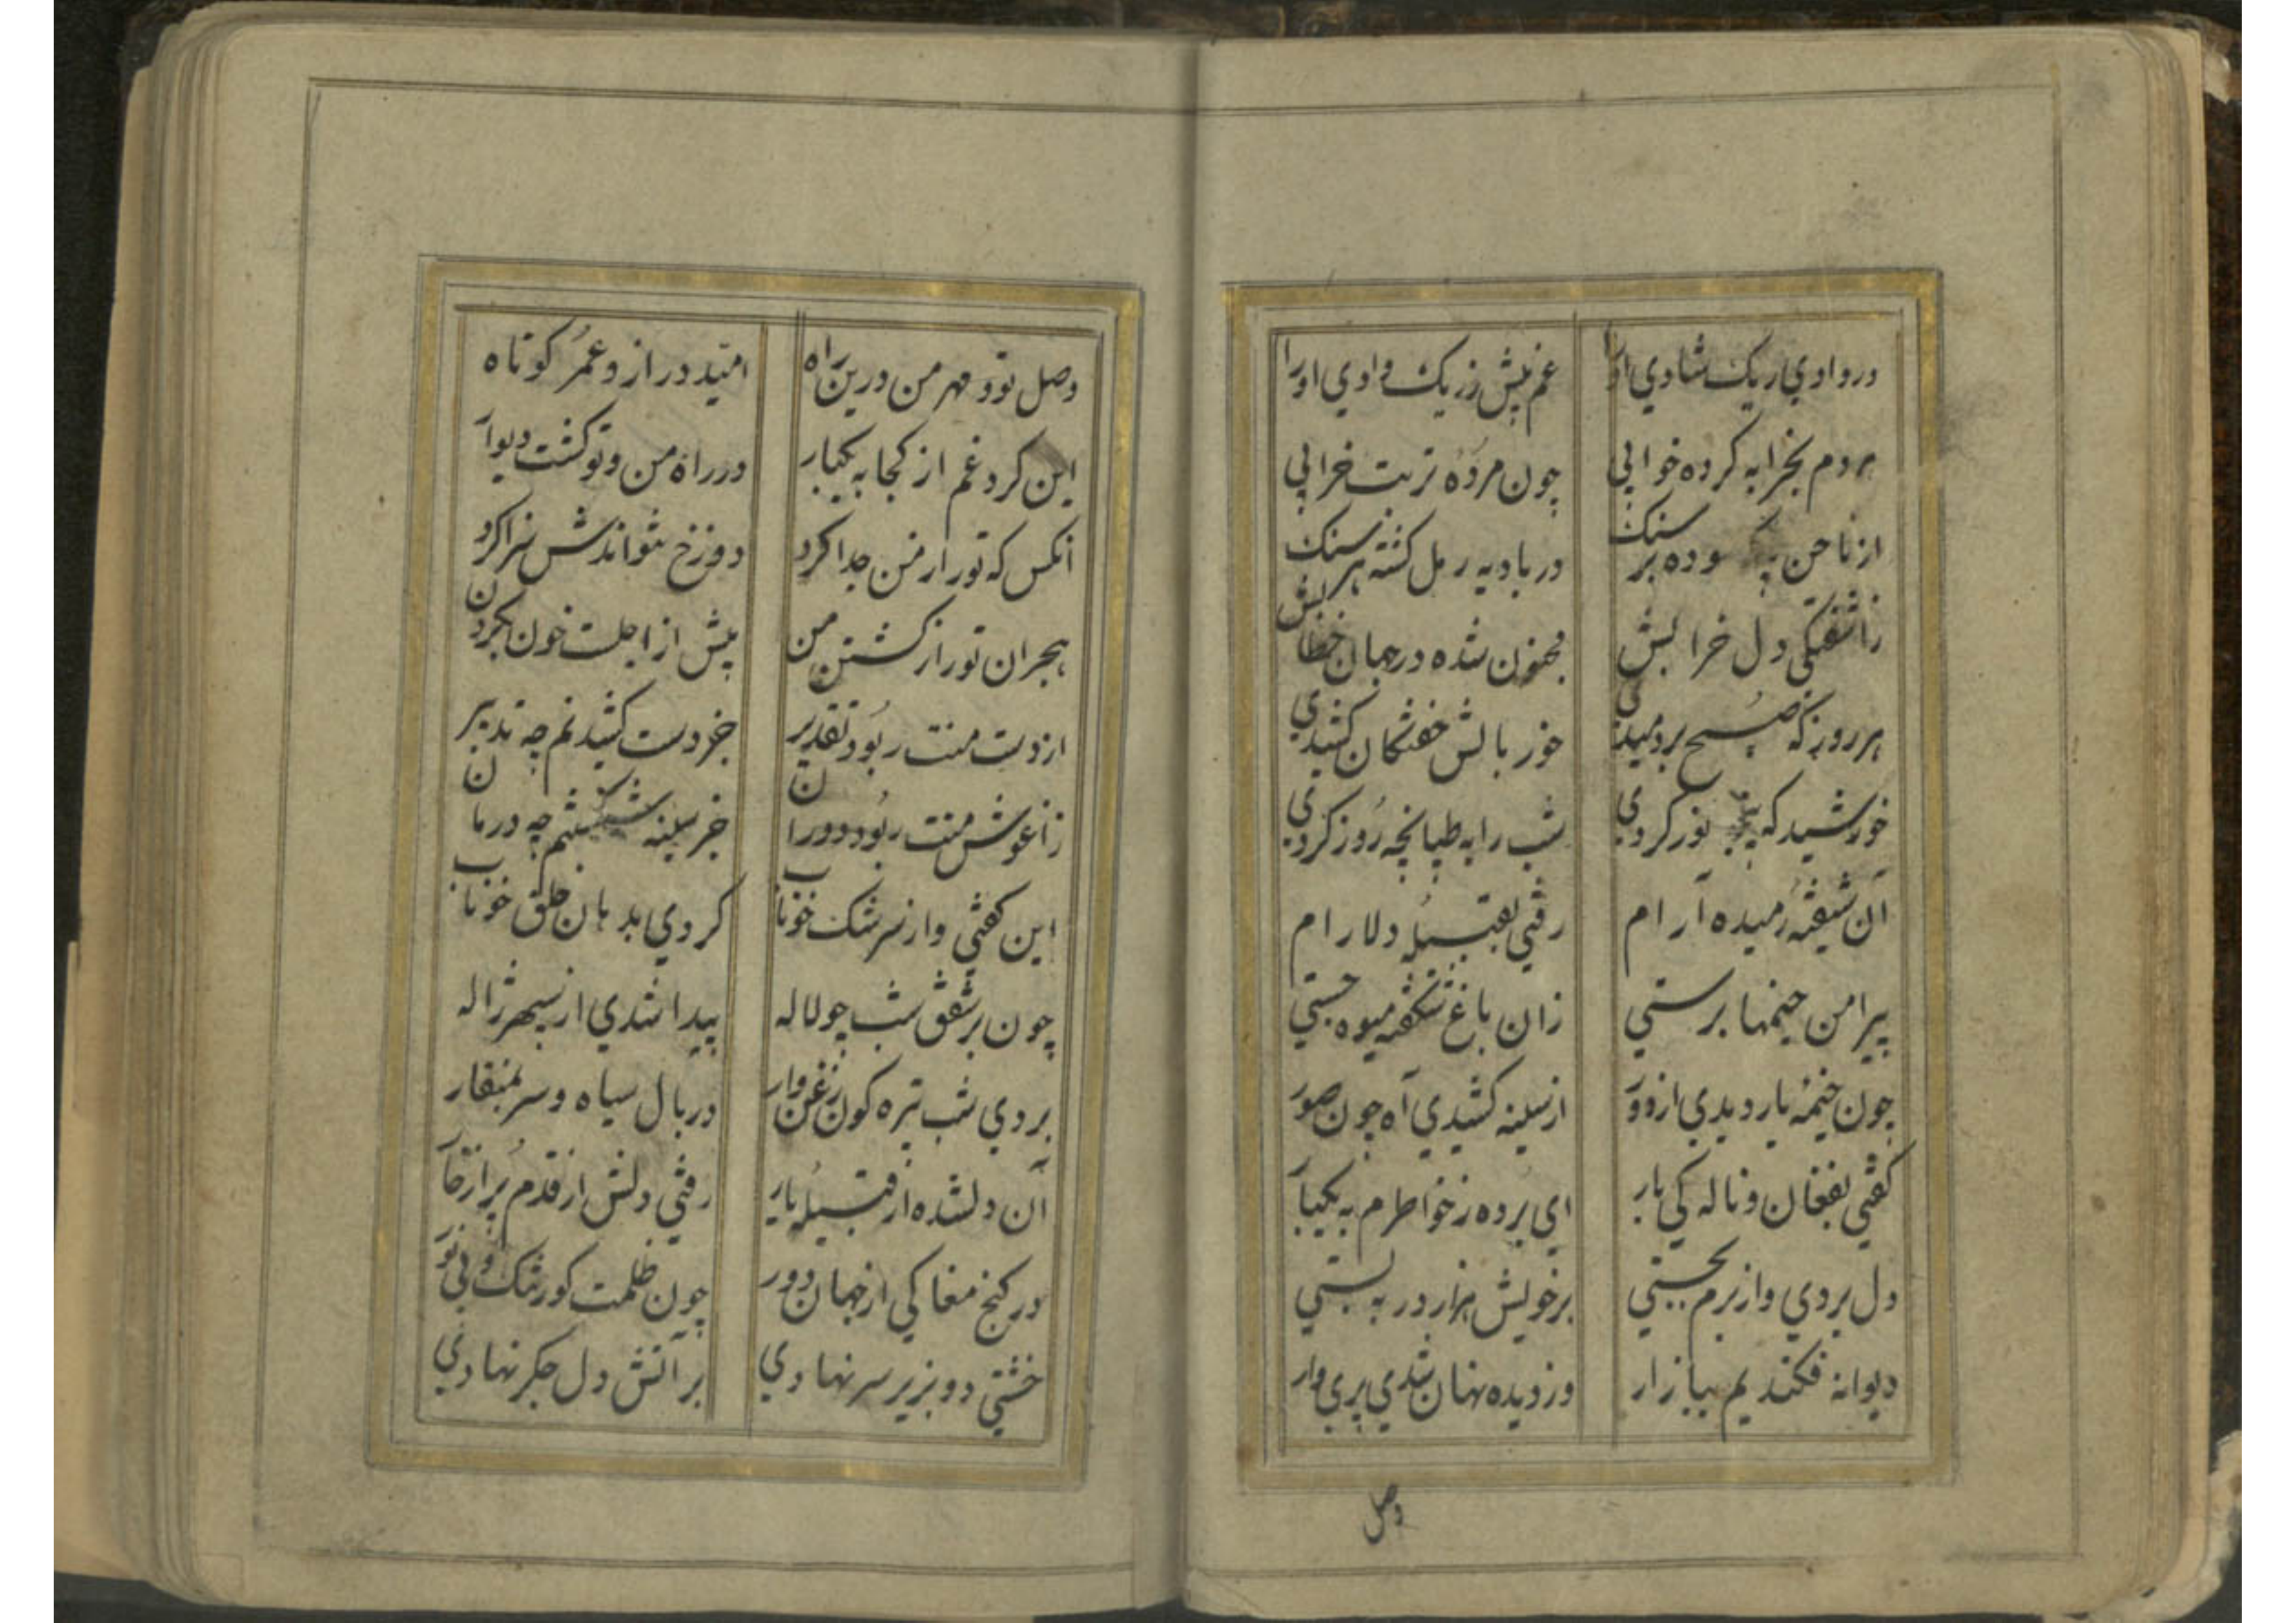 دروادی ریک شادی اورا
غم پیش زریک وادی اورا
هردم بخرابه کرده خوابی
چون مرده تربت خرابی
از ناخن سوده بر سنک
در بادیه رمل کشته هر سنک
زاشفتکی دل خرابش
مجنون شده درجهان خطابش
هر روز که صبح بردمیدی
خور بالش خفتکان کشیدی
خورشید که نور کردی
شب را به طپانچه روز کردی
آن شیفته رمیده آرام
رفتی بقبیله دلارام
پیرامن خیمها برستی
زان باغ شکفته میوه جستی
چون خیمه یار دیدی ازدور
از سینه کشیدی آه چون صور
کفتی بفغان و ناله کی یار
ای برده زخواطرم به یکبار
دل بردی و از برم بجستی
بر خویش هزار در به بستی
دیوانه فکندیم ببازار
وز دیده نهان شدی پری وار
وصل
وصل تو و مهر من درین راه
امید دراز و عمر کوتاه
این کرد غم از کجا به یکبار
در راه من و تو کشت دیوار
انکس که تورا زمن جدا کرد
دوزخ نتواندش سزا کرد
هجران تورا زکشتن من
پیش از اجلت خون بکردن
از دست منت ربود تقدیر
جز دست کشیدنم چه تدبیر
زاغوش منت ربود دوران
جز سینه شکستنم چه درمان
این کفتی و از سرشک خوناب
کردی بدهان خلق خوناب
چون بر شفق شب چو لاله
پیدا شدی از سپهر ژاله
بردی شب تیره کون زغن وار
در بال سیاه و سر بمنقار
آن دلشده از قبیله یار
رفتی دلش از قدم پر از خار
در کنج مغاکی از جهان دور
چون ظلمت کور تنک و بی نور
خشتی دو بزیر سر نهادی
بر آتش دل جکر نهادی